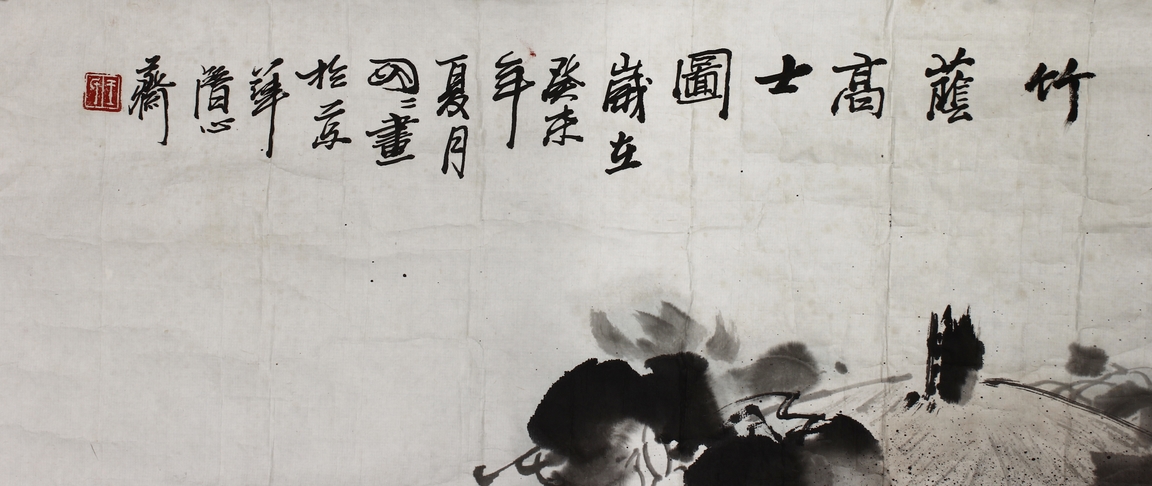 竹蔭高士圖
歲在癸未年夏月畫於京華心齋